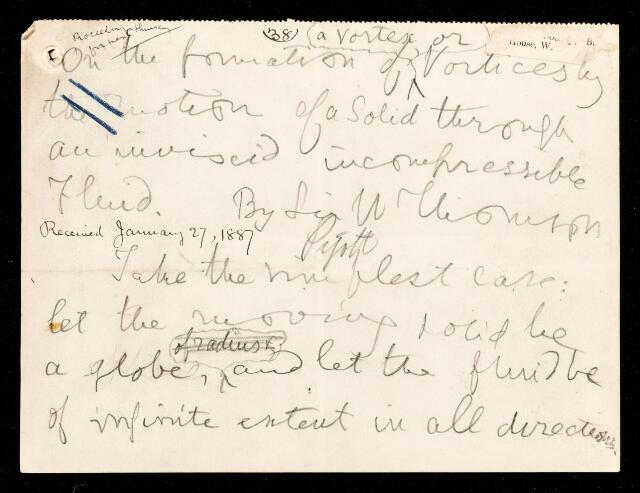 Proceedings
(38) (a vortex, or
House, W.
On the formation of Vortices by
the motion of a Solid through
an inviscid incompressible
Fluid. By Sir W Thomson
Received January 27, 1887
Take the simplest case:
let the moving solid be
of radius
a globe, and let the fluid be
of infinite extent in all directions.